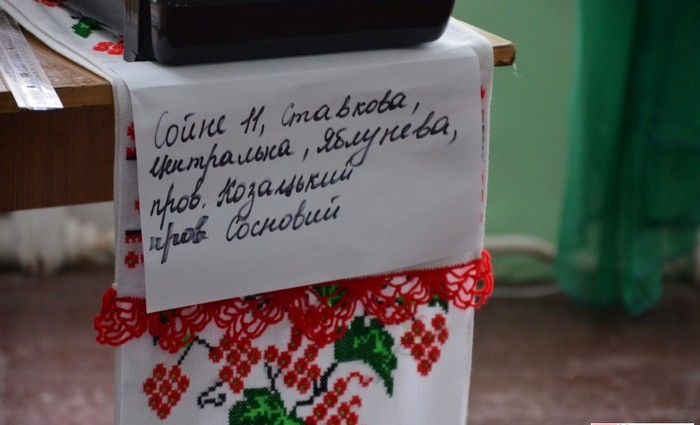 Сойне 11, Ставкова,
Центральна, Яблунева,
пров. Козацький
пров Сосновий